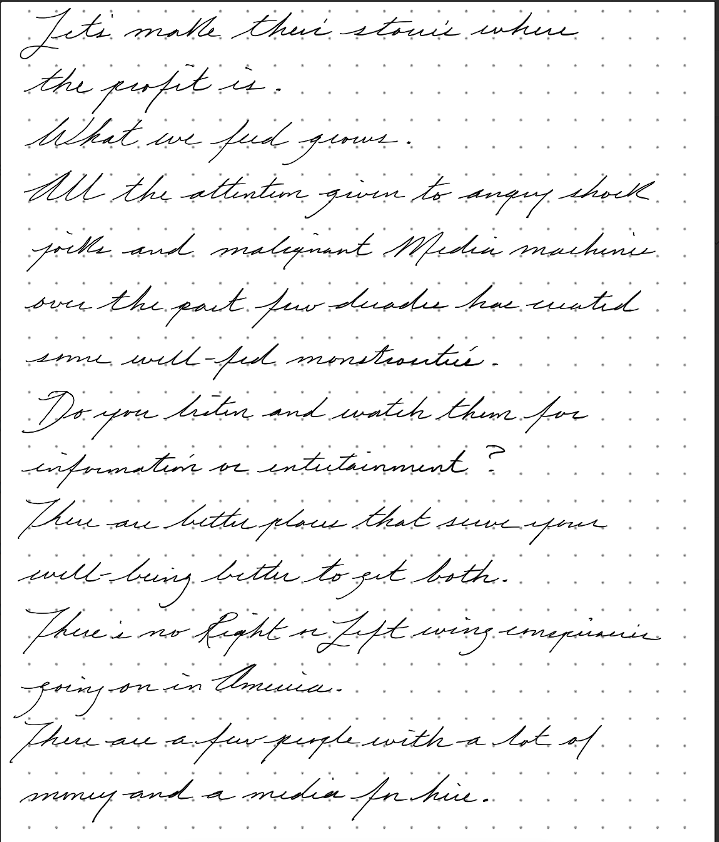 Let's make their stories where
the profit is.
What we feed grows.
All the attention given to angry shock
jocks and malignant Media machines
over the past few decades has created
some well-fed monstrosities.
Do you listen and watch them for
information or entertainment?
There are better places that serve your
well-being better to get both.
There's no Right or Left wing conspiracies
going on in America.
There are a few people with a lot of
money and a media for hire.